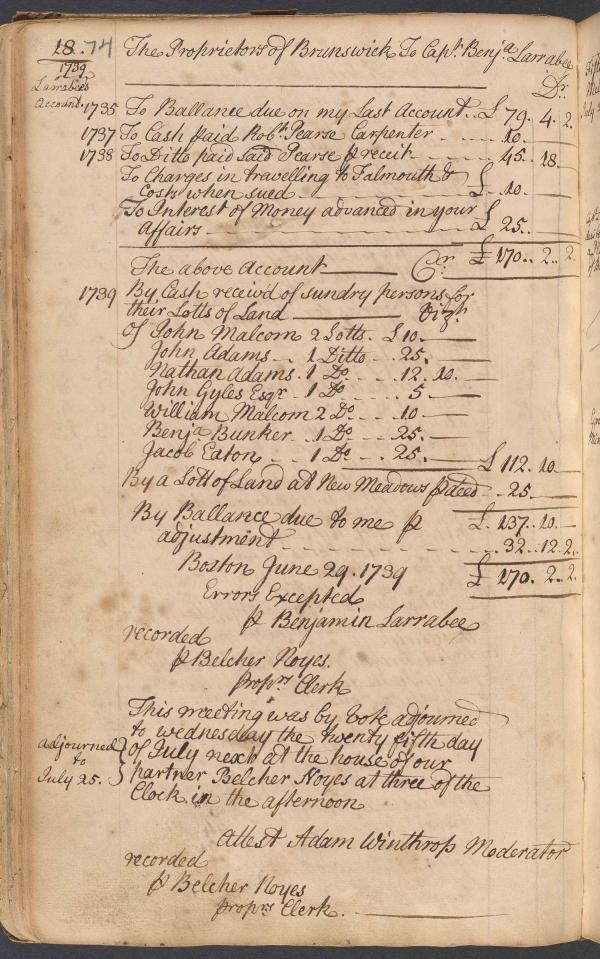 18.74 The Proprietors of Brunswick To Capt. Benja Larrabee
1739 Dr.
Larrabee's
Account.
1735 To Ballance due on my Last Account.. £ 79. 4. 2.
1737 To Cash paid Robt. Pearse Carpenter 10.
1738 To Ditto paid Said Pearse ⅌ receit 45. 18.
To Charges in travelling to Falmouth &
Costs when sued £ 10.
To Interest of Money advanced in your
Affairs £ 25..
£ 170.. 2.. 2.
The above Account Cr.
1739 By Cash receiv'd of sundry persons for
their Lotts of Land Vizt.
Of John Malcom 2 Lotts. £ 10.
John Adams.. 1 Ditto 25.
Nathan Adams. 1 Do 12. 10.
John Gyles Esqr. 1 Do 5
William Malcom 2 Do 10
Benja Bunker. 1 Do 25.
Jacob Eaton 1 Do 25. £ 112. 10.
By a Lott of Land at New Meadows ⅌ deed 25.
By Ballance due to me ⅌ £. 137. 10.
adjustment 32.. 12. 2.
Boston June 29. 1739 £ 170. 2.. 2.
Errors Excepted
⅌ Benjamin Larrabee
recorded
⅌ Belcher Noyes.
Proprs Clerk
This meeting was by Vote adjourned
to wednesday the twenty fifth day
adjourned of July next at the house of our
to
July 25. partner Belcher Noyes at three of the
Clock in the afternoon
Attest Adam Winthrop Moderator
recorded
⅌ Belcher Noyes
proprs Clerk.